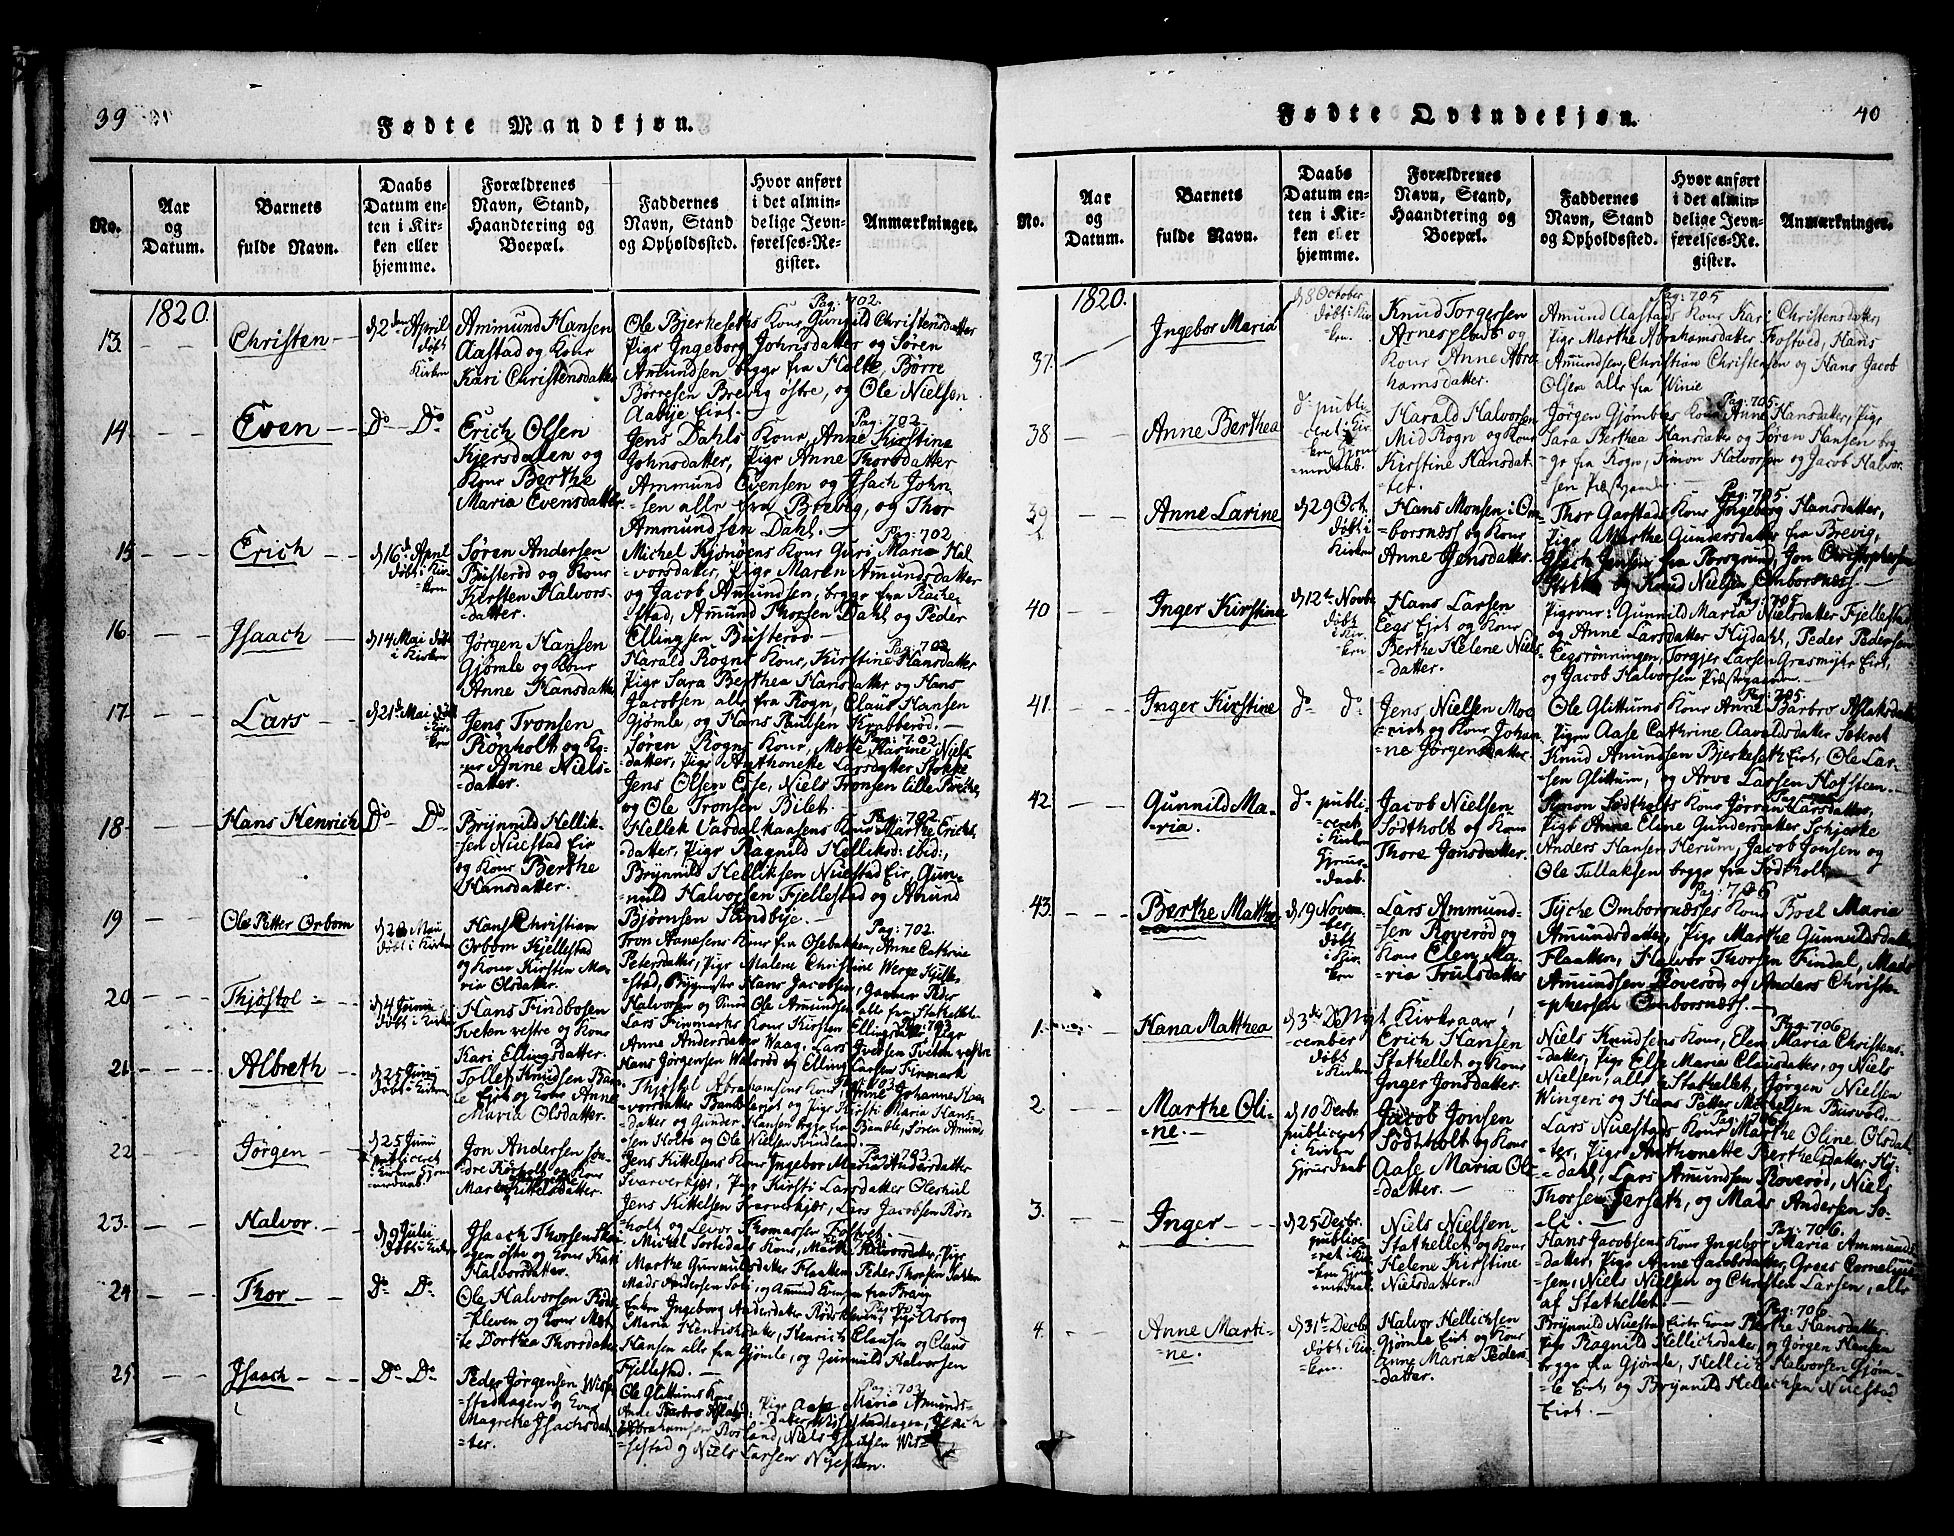 39
Fødte Mandkjøn.
No.
Aar
og
Datum.
Barnets
fulde Navn.
Daabs
Datum en-
ten i Kir-
ken eller
hjemme.
Forældrenes
Navn, Stand,
Haandtering og
Boepæl.
Faddernes
Navn, Stand
og Opholdssted.
Hvor anført
i det almin-
delige Jevn-
førelses-Re-
gister.
Anmærkninger.
1820.
13.
Christen
d 2den April
døbt i
Kirken
Ammund Hansen
Aastad og Kone
Kari Christensdatter
Pag: 702.
Ole Bjerkesets Kone Gunild Christensdatter
Pige Ingeborg Johnsdatter og Søren
Amundsen begge fra Holte, Børre
Børresen Brevig østre og Ole Nielsen
Aabye Eirt.
14
Even
Do Do
Erich Olsen
Kjersdalen og
Kone Berthe
Maria Evensdatter
Pag: 702.
Jens Dahls Kone, Anne Kirstine
Johnsdatter, Pige Anne Thorsdatter
Ammund Evensen og Isach John-
sen alle fra Brevig, og Thor
Ammundsen Dahl.
15
Erich
d 16d April
døbt i Kir-
ken
Søren Andersen
Busterød og Kone
Kirsten Halvors-
datter.
Pag: 702
Michel Kjønøens Kone Guri Maria Hal-
vorsdatter, Pige Maren Amundsdatter
og Jacob Amundsen, begge fra Rache-
stad, Amund Thorsen Dahl og Peder
Ellingsen Busterød.
16
Isaach
d 14 Mai døbt
i Kirken
Jørgen Hansen
Gjømle og Kone
Anne Hansdatter
Pag: 702
Harald Rogns Kone, Kirstine Hansdatter
Pige Sara Berthea Hansdatter og Hans
Jacobsen alle fra Rogn, Claus Hansen
Gjømle, og Hans Paulsen Krabberød.
17
Lars
d 21de Mai døbt
i Kir-
ken
Jens Tronsen
Rønholt og Ko-
ne Anne Niels-
datter.
Pag: 702
Søren Rogns Kone, Mette Karine Niels-
datter, Pige Anthonette Larsdatter Stokke
Jens Olsen Ese, Niels Tronsen lille Brethe,
og Ole Tronsen Bilet.
18
Hans Henrich
Do Do
Brynnild Hellik-
sen Nuestad Eir
og Kone Berthe
Hansdatter.
Pag: 702
Hellek Vasdalkaasens Kone Marthe Erichs-
datter, Pige Ragnild Helliksd: ibid:,
Brynnild Helliksen Nuestad Eir, Gun-
nuld Halvorsen Fjellestad og Amund
Bjørnsen Sundbye.
19
Ole Petter Orbom
d 28 Mai
døbt i Kirken
Hans Christian
Orbom Kjellestad
og Kone Kirsten Ma-
ria Olsdatter.
Pag: 702.
Tron Aanesens Kone fra Osebakken, Anne Cathrie
Petersdatter, Pige Malene Christine Werge Kjelle-
stad, Hans Jacobsen, Peder
Halvorsen og Ole Amundsen fra Stathellet
20
Thjøstol
d 4 Junii
døbt i Kirken
Hans Findbosen
Tveten vestre og Kone
Kari Ellingsdatter.
Pag: 703
Lars Finmarks Kone Kirsten Ellingsdatter, Pige
Anne Andersdatter Waag, Lars Iversen Tveten vestre
Hans Jørgensen Walsrød og Elling Larsen Finmark
21
Albreth
d 25 Junii
døbt i Kirken
Tollef Knudsen Bam-
le Eirt og Kone Anne
Maria Olsdatter.
Pag: 703.
Thjøstol Abrahamsens Kone Anne Johanne Hal-
vorsdatter og Pige Kirsti Maria Hans-
datter og Gunder Hansen begge fra Bamble, Søren Amund-
sen Holte og Ole Nielsen Rundland.
22
Jørgen
d 25 Junii
publiceret
i Kirken Hjem-
medaab
Jon Andersen søn-
dre Rørholt og Kone
Maren Kittelsdatter.
Pag: 703.
Jens Kittelsens Kone Ingebor Maria Andersdatter
Svarverkjær, Pige Kirsti Larsdatter Oleshul
Jens Kittelsen Svarverkjær, Lars Jacobsen Rør-
holt og Levor Thomassen Fostvet.
23.
Halvor.
d 9 Julii
døbt i Kirken
Isaach Thorsen
østre og Kone Kari
Halvorsdatter.
Michel Sortedals Kone, Marthe Halvorsdatter, Pige
Marthe Gunnuldsdatter Flaatten, Peder Thorsen
Mads Andersen Soli, og Amund Evensen fra Brevig
24
Thor
Do Do
Ole Halvorsen Røds-
kleven og Kone Met-
te Dorthea Thorsdatter
Pag: 703.
Enken Ingeborg Andersdater Rødskleven, Pige Asborg
Maria Henrichsdatter, Henrich Clausen og Claus
Hansen alle fra Gjømle, og Gunnuld Halvorsen
Fjellestad.
25
Isaach
Do Do
Peder Jørgensen Wisse-
stadhagen og Kone
Magrethe Isachsdat-
ter.
Pag: 703
Ole Glittums Kone
Anne Barbro Aslaksd: Pige Aase Maria Amunds-
datter Wissestadhagen, Isach
Abrahamsen Rosland, Niels Isachsen Wis-
sestad og Niels Larsen Nyesteen.
40
Fødte Qvindekjøn.
No.
Aar
og
Datum.
Barnets
fulde Navn.
Daabs
Datum en-
ten i Kir-
ken eller
hjemme.
Forældrenes
Navn, Stand,
Haandtering og
Boepæl.
Faddernes
Navn, Stand
og Opholdssted.
Hvor anført
i det almin-
delige Jevn-
førelses-Re-
gister.
Anmærkninger.
1820.
37.
Ingebor Maria
d 8 October
døbt i Kir-
ken.
Knud Torgersen
Arnesplads og
Kone Anne Abra
hamsdatter.
Pag: 705
Amund Aastads Kone Kari Christensdatter,
Pige Marthe Abrahamsdatter Fostved, Hans
Amundsen, Christian Christensen og Hans Jacob
Olsen alle fra Winie
38
Anne Berthea
do publi-
ceret i Kir-
ken Hjem-
medaab.
Harald Halvorsen
Mid Rogn og Kone
Kirstine Hansdat-
ter.
Pag: 705.
Jørgen Gjømbles Kone Anne Hansdatter, Pige
Sara Berthea Hansdatter og Søren Hansen beg-
ge fra Rogn, Simon Halvorsen og Jacob Halvor-
sen Præstgaarden
39
Anne Larine
d 29 Oct.
døbt i
Kirken
Hans Monsen i Om-
borsnæs og Kone
Anne Jensdatter.
Pag: 705.
Thor Garstads Kone Ingeborg Hansdatter,
Pige Marthe Gundersdatter fra Brevig,
Isach Jensen fra Porsgrund, Jon Christophersen
Stokke og Knud Nielsen Omborsnæs.
40
Inger Kirstine
d 12te Novbr
døbt i
Kir-
ken.
Hans Larsen
Eegs Eirt og Kone
Berthe Helene Niels-
datter.
Pag: 705
Pigerne: Gunnild Maria Nielsdatter Fjellestad
og Anne Larsdatter Hydahl, Peder Pedersen
Eegsrønningen, Torgjer Larsen Grasmyr Eirt,
og Jacob Halvorsen Præstgaarden.
41.
Inger Kirstine
do do
Jens Nielsen Moe
Eirt og Kone Johan-
ne Jørgensdatter.
Pag: 705.
Ole Glittums Kone Anne Barbro Aslaksdatter
Pigen Aase Cathrine Aavaldsdatter
Knud Amundsen Bjerkeseth Eirt, Ole Lar-
sen Glittum, og Arve Larsen Hafsteen.
42.
Gunnild Ma-
ria.
do publi-
ceret
i Kirken
Hjem-
daab.
Jacob Nielsen
Södtholt og Kone
Thore Jonsdatter.
Simon Södtholts Kone Jørren Larsdatter,
Pige Anne Eline Gundersdatter Schjerke
Anders Hansen Herum, Jacob Jonsen og
Ole Tellaksen begge fra Södtholt.
43.
Berthe Mathea
d 19 Novem-
ber
døbt
i Kir-
ken
Lars Ammund-
sen Roverød og
Kone Elen Ma-
ria Trulsdatter
Pag: 706
Tyche Omborsnæsses Kone Boel Maria
Amundsdatter, Pige Marthe Gunnuldsdatter
Flaatten, Halvor Thorsen Findal, Mads
Amundsen Roverød og Anders Christo-
phersen Omborsnæs.
Nyt Kirkeaar!
1.
Hana Matthea
d 3die De-
cember
døbt
i Kirken
Erich Hansen
Stathellet og Kone
Inger Jonsdatter.
Pag: 706.
Niels Knudsens Kone, Elen Maria Christens-
datter, Pige Else Maria Clausdatter, og Niels
Nielsen, alle Stathellet, Jørgen Nielsen
Wingeri og Hans Petter Mortelsen Busrød.
2.
Marthe Oli-
ne.
d 10 Decbr
publiceret
i Kirken
Hjemdaab
Jacob Jonsen
Södtholt og Kone
Aase Maria Ole
datter.
Pag: 706
Lars Nuestads Kone Marthe Oline Olsdat-
ter, Pige Anthonette Berthesdatter Hy-
dahl, Lars Amundsen Roverød, Niels
Thorsen Herseth, og Mads Andersen So-
li.
3.
Inger
d 25 Decbr.
publice-
ret i Kir-
ken Hjem-
medaab.
Niels Nielsen
Stathellet og Kone
Helene Kirstine
Nielsdatter.
Pag: 706.
Hans Jacobsens Kone Ingebor Maria Ammunds-
datter, Pige Anne Jacobsdatter, Græs Cornelius-
sen, Niels Nielsen og Christen Larsen, alle
af Stathellet.
4.
Anne Marti-
ne.
d 31te Decbr
døbt i Kir-
ken.
Halvor Hellichsen
Gjømle Eirt og Kone
Anne Maria Peders
datter.
Pag: 706
Brynnild Nuestad Eirts Kone Berthe Hansdatter
Pige Ragnild Hellichsdatter, og Jørgen Hansen
begge fra Gjømle, Hellich Halvorsen Gjøm-
le Eirt, og Brynnild Hellichsen Nuestad
Eirt.